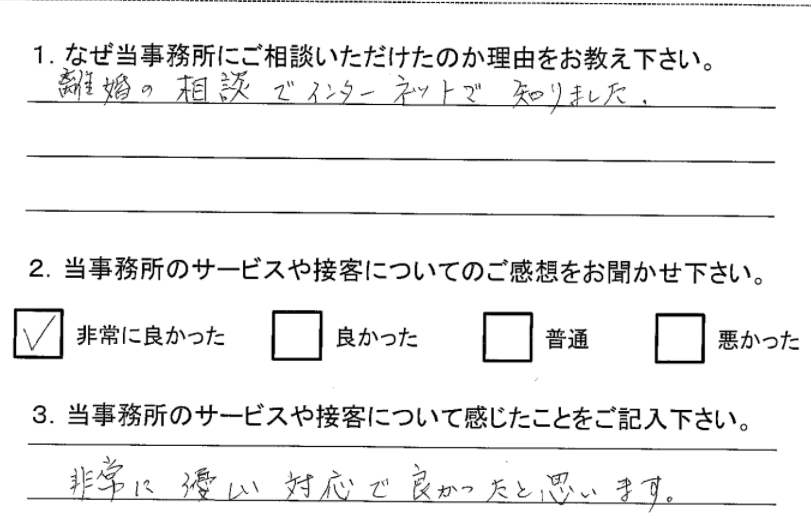 1. なぜ当事務所にご相談いただけたのか理由をお教え下さい。
離婚の相談でインターネットで知りました.
2. 当事務所のサービスや接客についてのご感想をお聞かせ下さい。
非常に良かった 良かった 普通 悪かった
3. 当事務所のサービスや接客について感じたことをご記入下さい。
非常に優しい対応で良かったと思います。